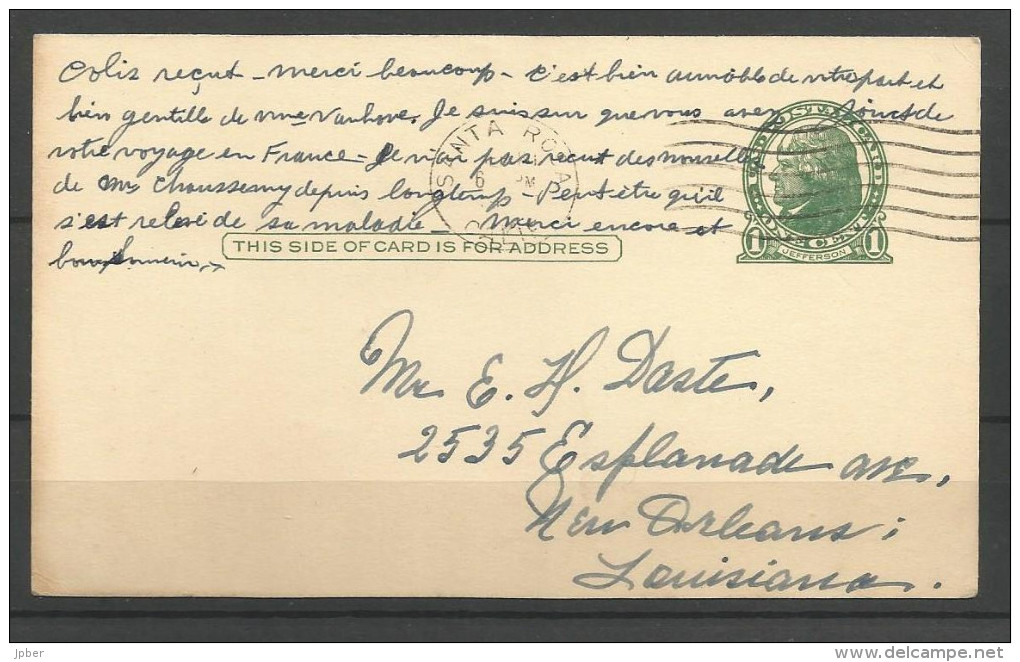 Colis reçut - merci beaucoup - C'est bien aimable de votre part et
bien gentille de Mme Vanhove. Je suis sur que vous avez joui de
votre voyage en France - Je n'ai pas reçut des nouvelles
de Mr Chaussemy depuis longtemps - Peut être qu'il
s'est relevé de sa maladie - Merci encore et
SANTA ROSA
6 PM
THIS SIDE OF CARD IS FOR ADDRESS
1 ONE CENT 1
JEFFERSON
Mr E. H. Daste,
2535 Esplanade Ave,
New Orleans;
Louisiana.
jpber
www.delcampe.net